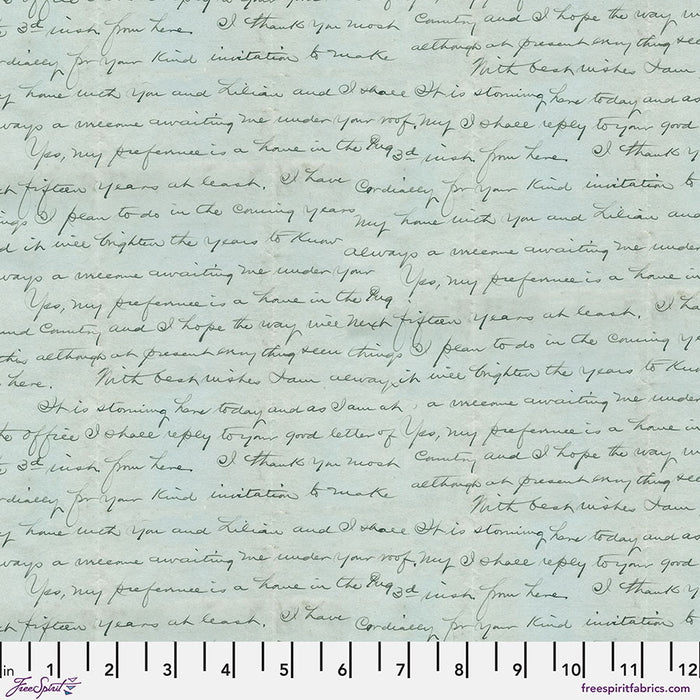 the office I shall reply to your good letter of Yes, my preference is a home in
3d inst from here. I thank you most Country and I hope the way w
cordially for your kind invitation to make although at present everything see
With best wishes I am
my home with you and Lilian and I shall It is storming here today and as
always a welcome awaiting me under your roof. My I shall reply to your good
Yes, my preference is a home in the Pug 3d inst from here. I thank y
fifteen years at least. I have Cordially for your kind invitation to
things I plan to do in the coming years my home with you and Lilian and
it will brighten the years to know always a welcome awaiting me under
always a welcome awaiting me under your Yes, my preference is a home in
Yes, my preference is a home in the Pug
and Country and I hope the way will Next fifteen years at least. I ha
this although at present everything seem things I plan to do in the coming ye
here. With best wishes I am always, it will brighten the years to know
It is storming here today and as I am at a welcome awaiting me under
the office I shall reply to your good letter of Yes, my preference is a home in
3d inst from here. I thank you most Country and I hope the way w
cordially for your kind invitation to make although at present everything see
With best wishes I am
my home with you and Lilian and I shall It is storming here today and as
always a welcome awaiting me under your roof. My I shall reply to your good
Yes, my preference is a home in the Pug 3d inst from here. I thank y
fifteen years at least. I have Cordially for your kind invitation to
in 1 2 3 4 5 6 7 8 9 10 11 12
FreeSpirit
freespiritfabrics.com